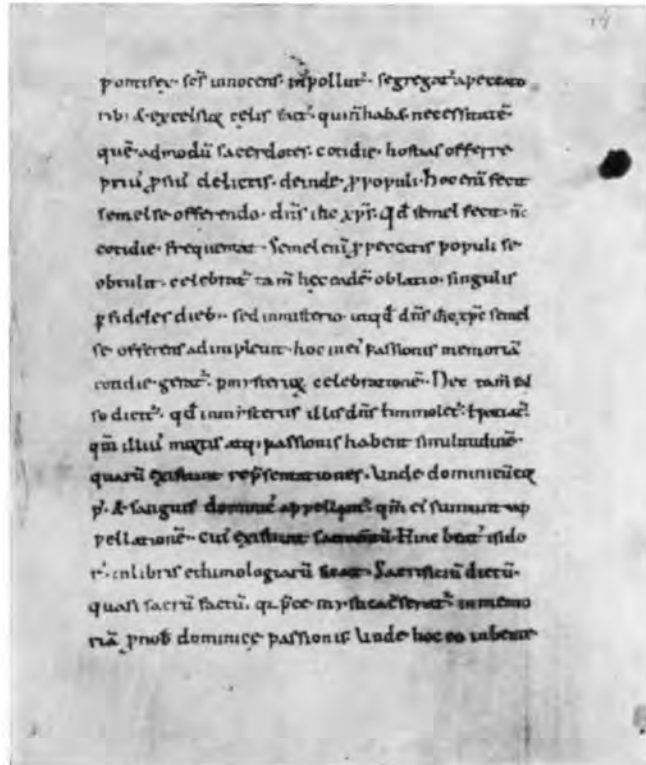 pontifex · scs̄ innocens · inpollut᷒ · segregat᷒ a peccato
rib; & excelsior celis fact᷒ · qui n̄ habet necessitatē ·
quē · admodū sacerdotes · cotidie · hostias offerre
priu᷒ ꝓ suis delictis · deinde · ꝓ populi · hoc eni fecit
semel se offerendo · dn̄s ih̄c xp̄s · qd̄ semel fecit · n̄c
cotidie · frequentat · Semel eni ꝓ peccatis populi se
obtulit · celebrat᷒ tam̄ hec eadē oblatio · singulis
ꝑ fideles dieb᷒ · sed in misterio · ut qd̄ dn̄s ih̄c xp̄c semel
se offerens adimplevit · hoc in ei᷒ passionis memoriā
cotidie · gerat᷒ · ꝑ mysteriorꝫ celebrationē · Nec tam̄ fal
so dicit᷒ · qd̄ in mysteriis illis dn̄s
qm̄ illius mortis atq; passionis habent similitudinē ·
quarū existunt rep̄sentationes · Unde dominicū corꝫ
p᷒ · & sanguis dominic᷒ appellant᷒ · qm̄ ei᷒ sumunt ap
pellationē · cui᷒ existunt sacramentū · Hinc beat᷒ isido
r᷒ · in libris ethimologiarū · Sacrificiū dictū ·
quasi sacrū factū · q̄ p̄ce mystica in memo
riā ꝓ nob̄ dominicę passionis · Unde hoc eo iubente